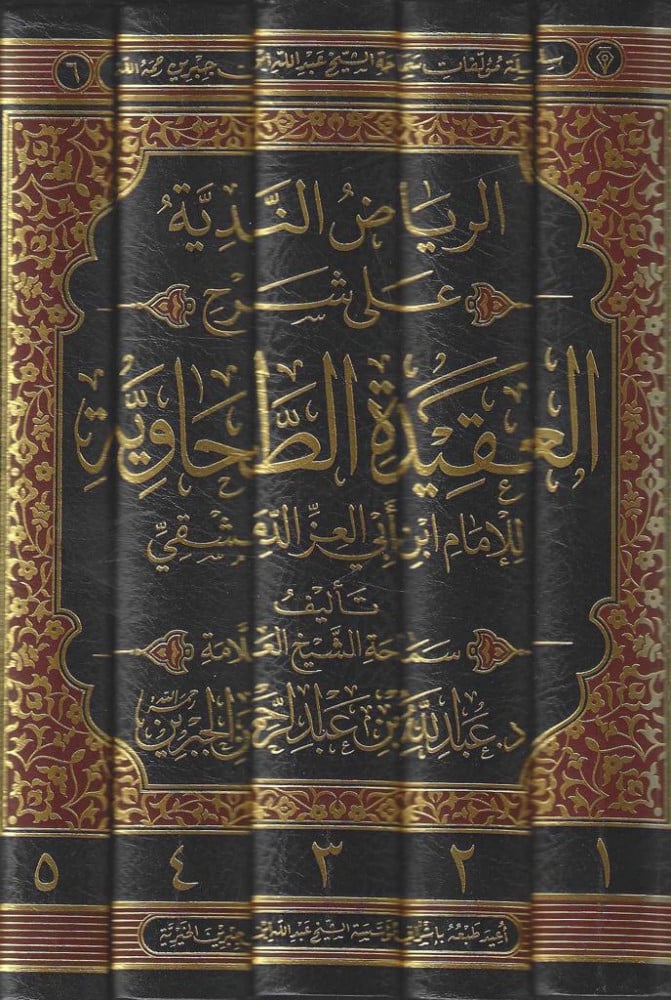 سلسلة مؤلفات سماحة الشيخ عبد الله بن جبرين رحمه الله ٦
الرياضُ النَّدِيَّةُ
عَلَى شَرْحِ
العَقِيدَةِ الطَّحَاوِيَّةِ
لِلإِمَامِ ابْنِ أَبِي العِزِّ الدِّمَشْقِيِّ
تَأليفُ
سَمَاحَة الشَّيْخ العَلَّامَة
د. عَبْد اللَّه بْن عَبْد الرَّحْمَن الجِبْرِين رحمه الله
١ ٢ ٣ ٤ ٥
أُعيد طبعُه بإشراف مؤسسة الشيخ عبد الله بن جبرين الخيرية